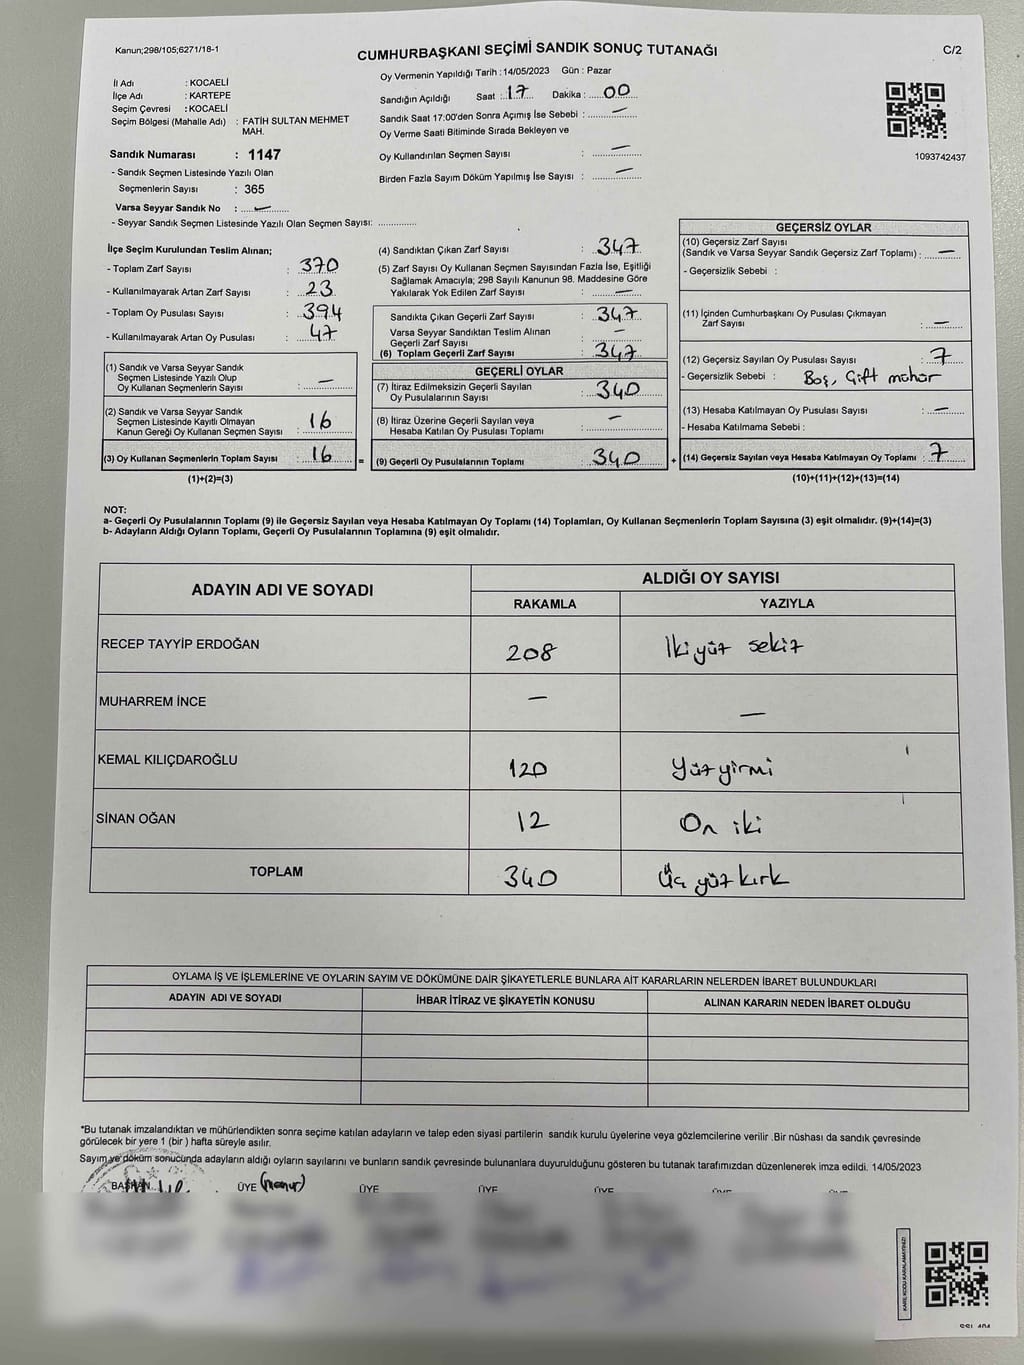 Kanun;298/105;6271/18-1
CUMHURBAŞKANI SEÇİMİ SANDIK SONUÇ TUTANAĞI
C/2
İl Adı : KOCAELİ
İlçe Adı : KARTEPE
Seçim Çevresi : KOCAELİ
Seçim Bölgesi (Mahalle Adı) : FATİH SULTAN MEHMET
MAH.
Sandık Numarası : 1147
- Sandık Seçmen Listesinde Yazılı Olan
Seçmenlerin Sayısı : 365
Varsa Seyyar Sandık No : —
- Seyyar Sandık Seçmen Listesinde Yazılı Olan Seçmen Sayısı:
Oy Vermenin Yapıldığı Tarih :14/05/2023 Gün : Pazar
Sandığın Açıldığı Saat : 17 Dakika : 00
Sandık Saat 17:00'den Sonra Açımış İse Sebebi : —
Oy Verme Saati Bitiminde Sırada Bekleyen ve
Oy Kullandırılan Seçmen Sayısı : —
Birden Fazla Sayım Döküm Yapılmış İse Sayısı : —
1093742437
İlçe Seçim Kurulundan Teslim Alınan;
- Toplam Zarf Sayısı : 370
- Kullanılmayarak Artan Zarf Sayısı : 23
- Toplam Oy Pusulası Sayısı : 394
- Kullanılmayarak Artan Oy Pusulası : 47
(1) Sandık ve Varsa Seyyar Sandık
Seçmen Listesinde Yazılı Olup
Oy Kullanan Seçmenlerin Sayısı : —
(2) Sandık ve Varsa Seyyar Sandık
Seçmen Listesinde Kayıtlı Olmayan
Kanun Gereği Oy Kullanan Seçmen Sayısı : 16
(3) Oy Kullanan Seçmenlerin Toplam Sayısı : 16 =
(1)+(2)=(3)
(4) Sandıktan Çıkan Zarf Sayısı : 347
(5) Zarf Sayısı Oy Kullanan Seçmen Sayısından Fazla İse, Eşitliği
Sağlamak Amacıyla; 298 Sayılı Kanunun 98. Maddesine Göre
Yakılarak Yok Edilen Zarf Sayısı : —
Sandıkta Çıkan Geçerli Zarf Sayısı : 347
Varsa Seyyar Sandıktan Teslim Alınan
Geçerli Zarf Sayısı : —
(6) Toplam Geçerli Zarf Sayısı : 347
GEÇERLİ OYLAR
(7) İtiraz Edilmeksizin Geçerli Sayılan
Oy Pusulalarının Sayısı : 340
(8) İtiraz Üzerine Geçerli Sayılan veya
Hesaba Katılan Oy Pusulası Toplamı : —
(9) Geçerli Oy Pusulalarının Toplamı : 340 +
GEÇERSİZ OYLAR
(10) Geçersiz Zarf Sayısı
(Sandık ve Varsa Seyyar Sandık Geçersiz Zarf Toplamı) : —
- Geçersizlik Sebebi :
(11) İçinden Cumhurbaşkanı Oy Pusulası Çıkmayan
Zarf Sayısı : —
(12) Geçersiz Sayılan Oy Pusulası Sayısı : 7
- Geçersizlik Sebebi : Boş, Çift mühür
(13) Hesaba Katılmayan Oy Pusulası Sayısı : —
- Hesaba Katılmama Sebebi :
(14) Geçersiz Sayılan veya Hesaba Katılmayan Oy Toplamı : 7
(10)+(11)+(12)+(13)=(14)
NOT:
a- Geçerli Oy Pusulalarının Toplamı (9) ile Geçersiz Sayılan veya Hesaba Katılmayan Oy Toplamı (14) Toplamları, Oy Kullanan Seçmenlerin Toplam Sayısına (3) eşit olmalıdır. (9)+(14)=(3)
b- Adayların Aldığı Oyların Toplamı, Geçerli Oy Pusulalarının Toplamına (9) eşit olmalıdır.
ADAYIN ADI VE SOYADI ALDIĞI OY SAYISI
RAKAMLA YAZIYLA
RECEP TAYYİP ERDOĞAN 208 İki yüz sekiz
MUHARREM İNCE — —
KEMAL KILIÇDAROĞLU 120 Yüz yirmi
SİNAN OĞAN 12 On iki
TOPLAM 340 Üç yüz kırk
OYLAMA İŞ VE İŞLEMLERİNE VE OYLARIN SAYIM VE DÖKÜMÜNE DAİR ŞİKAYETLERLE BUNLARA AİT KARARLARIN NELERDEN İBARET BULUNDUKLARI
ADAYIN ADI VE SOYADI İHBAR İTİRAZ VE ŞİKAYETİN KONUSU ALINAN KARARIN NEDEN İBARET OLDUĞU
*Bu tutanak imzalandıktan ve mühürlendikten sonra seçime katılan adayların ve talep eden siyasi partilerin sandık kurulu üyelerine veya gözlemcilerine verilir .Bir nüshası da sandık çevresinde
görülecek bir yere 1 (bir ) hafta süreyle asılır.
Sayım ve döküm sonucunda adayların aldığı oyların sayılarını ve bunların sandık çevresinde bulunanlara duyurulduğunu gösteren bu tutanak tarafımızdan düzenlenerek imza edildi. 14/05/2023
BAŞKAN ÜYE (memur) ÜYE ÜYE ÜYE
KARE KODU KARALAMAYINIZ!